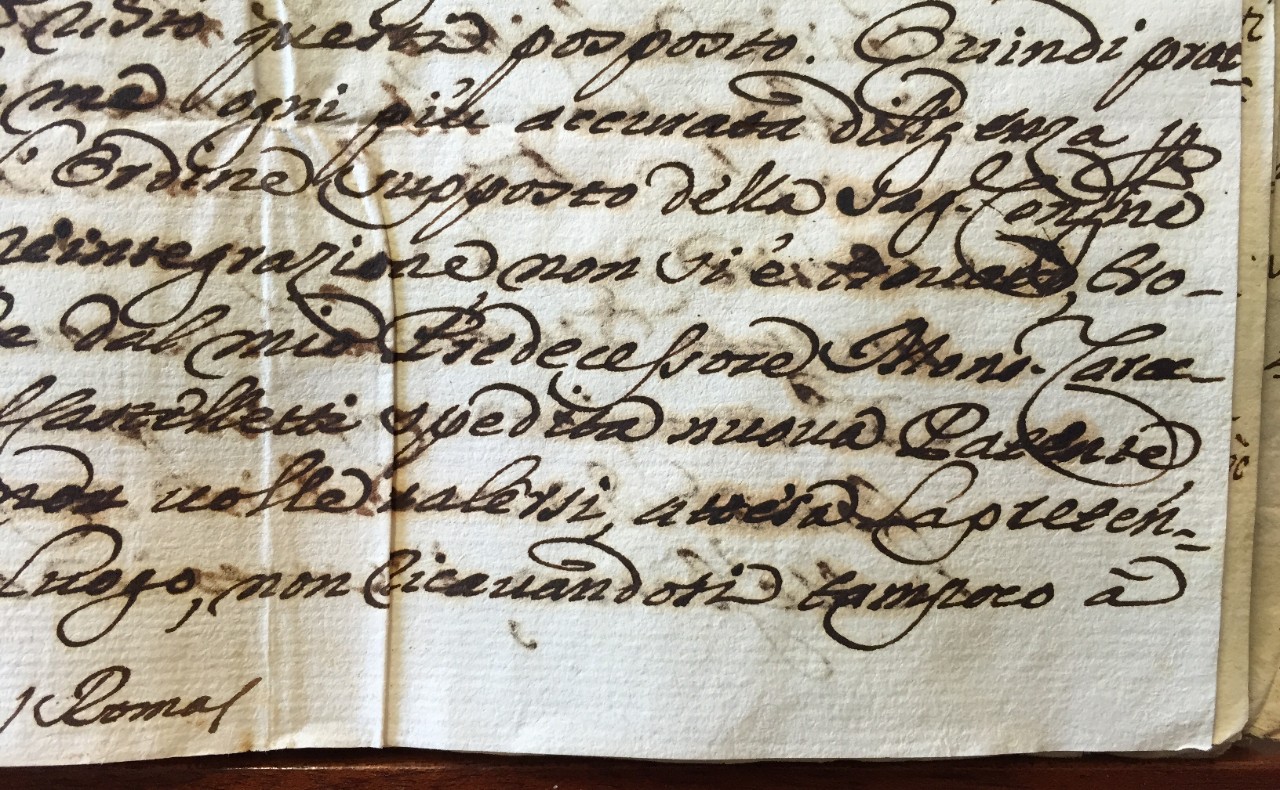 questi posposto. Quindi prat=
me ogni più accurata diligenza
Ordine supposto della Sag. Congñe
reintegrazione non vi è trovato, Cro-
dal mio Predecessore Monsr. Carac-
spedita nuova Patente,
non volle valersi, attesa la preten=
Luogo, non ricavandosi tampoco à
Roma